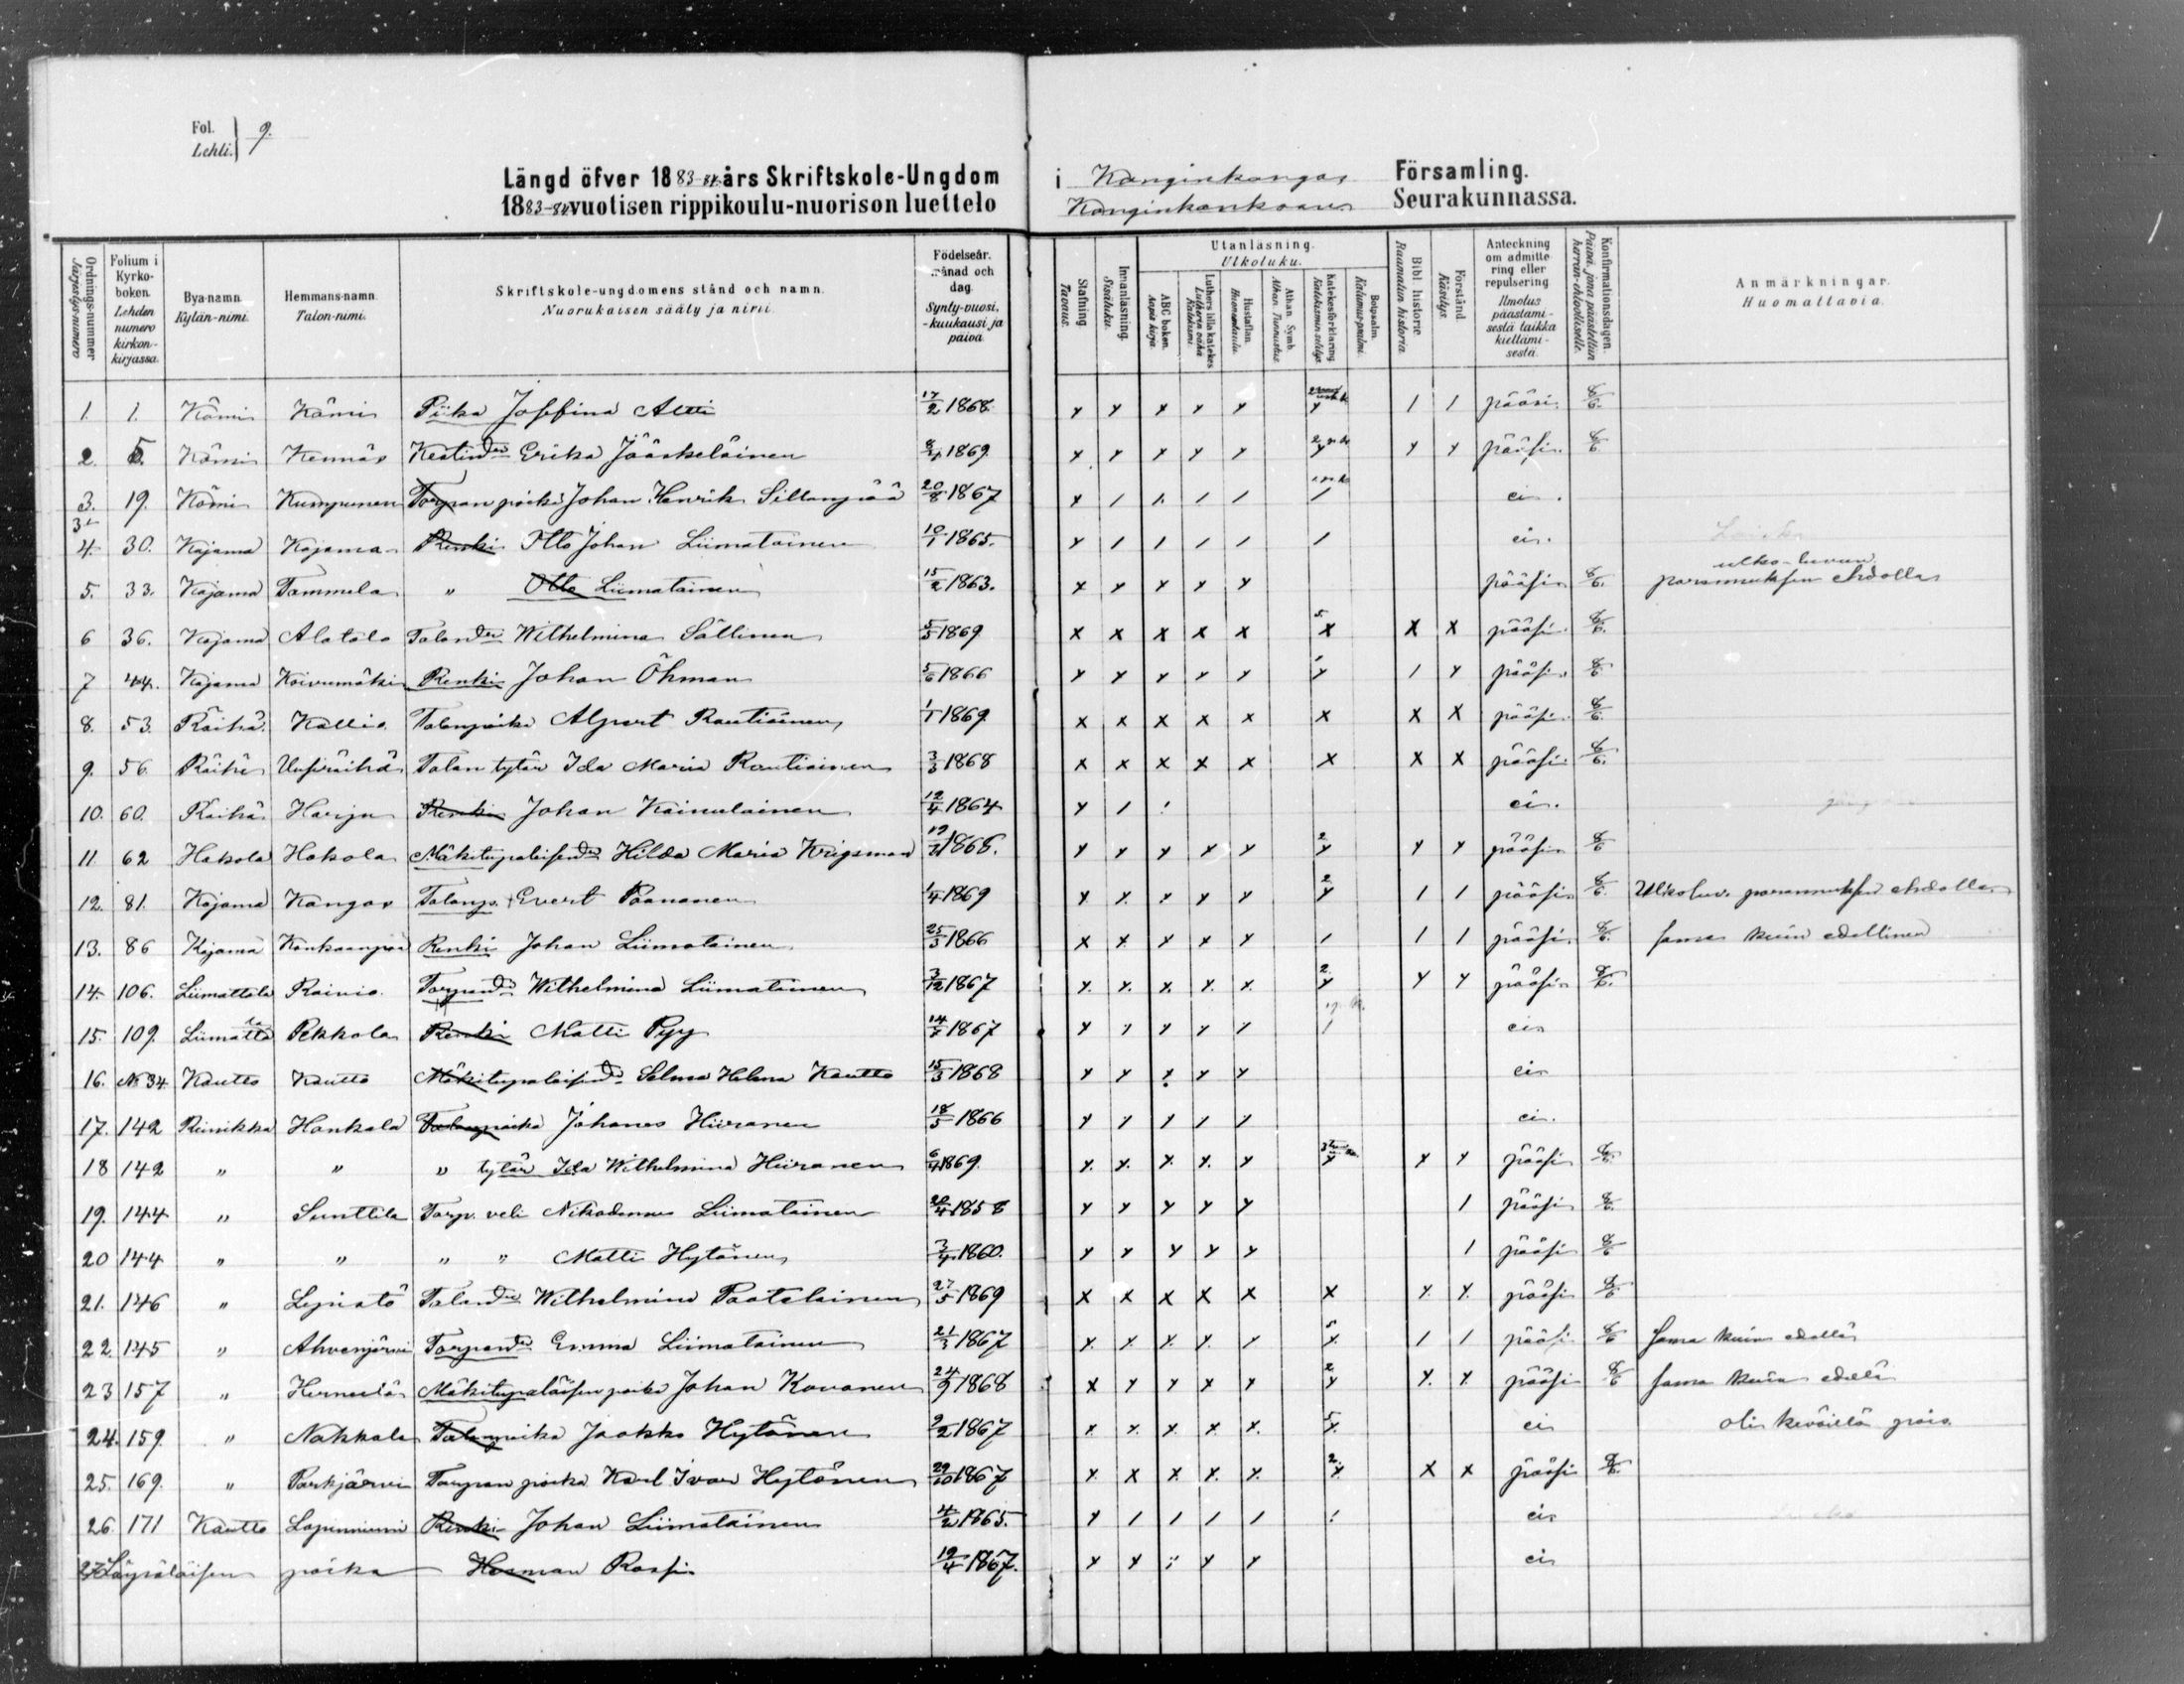 Fol. Lehti. 9.
Längd öfver 1883-84 års Skriftskole-Ungdom i Kanginkangas Församling.
1883-84 vuotisen rippikoulu-nuorison luettelo Kanginkankaan Seurakunnassa.
Ordnings-nummer Järjestys-numero
Folium i Kyrko-boken. Lehden numero kirkon-kirjassa.
Bya-namn. Kylän-nimi.
Hemmans-namn. Talon-nimi.
Skriftskole-ungdomens stånd och namn. Nuorukaisen sääty ja nimi.
Födelseår, månad och dag. Synty-vuosi, -kuukausi ja päivä.
Stafning Tavaus.
Innanläsning. Sisäluku.
Utanläsning. Ulkoluku.
ABC boken. Aapis kirja.
Luthers lilla katekes Lutherin vähä Katekismi.
Hustaflan. Huoneentaulu.
Athan. Symb. Athan. Tunnustus.
Katekesförklaring Katekismin selitys.
Botpsalm. Katumus-psalmi.
Bibl. historie Raamatun historia.
Förstånd Käsitys.
Anteckning om admittering eller repulsering. Ilmotus päästämisestä taikka kieltämisestä.
Konfirmationsdagen. Päivä, jona päästettiin herran-ehtoolliselle.
Anmärkningar. Huomattavia.
1. 1. Kömi Kömi Piika Joseffina Atti 17/2 1868 x x x x x x 1 1 pääsi 8/6
2. 5. Kömi Kennäs Kestin dr Erika Jääskeläinen 8/4 1869 x x x x x x x x pääsi 8/6
3. 19. Kömi Kumpunen Torpan poika Johan Henrik Sillanpää 20/8 1867 x 1 1 1 1 1 ei
4. 30. Kajama Kajama Renki Otto Johan Liimatainen 10/1 1865. x 1 1 1 1 1 ei.
5. 33. Kajama Tammela " Otto Liimatainen 15/2 1863. x x x x x pääsi 8/6. ulko-luvun parannuksen ehdolla
6 36. Kajama Alatalo Talon dr Wilhelmina Sällinen 5/5 1869 x x x x x 5 x x x pääsi 8/6.
7 44. Kajama Koivumäki Renki Johan Öhman 5/6 1866 x x x x x x 1 x pääsi 8/6
8. 53. Räihä Kallio Talonpoika Alpert Rautiainen 1/1 1869 x x x x x x x x pääsi 8/6.
9. 56 Räihä Uusiräihä Talon tytär Ida Maria Rautiainen 3/3 1868 x x x x x x x x pääsi 8/6.
10. 60. Räihä Harju Renki Johan Kainulainen 12/4 1864 x 1 1 ei.
11. 62 Hakola Hakola Mäkitupalaisen dr Hilda Maria Krigsman 1868. x x x x x 2 x x x pääsi 8/6
12. 81. Kajama Kangas Talonp. Evert Paananen 1/4 1869 x x x x x 2 x 1 1 pääsi 8/6. Ulkoluv. parannuksen ehdolla
13. 86 Kajama Kankaanpää Renki Johan Liimatainen 25/3 1866 x x x x x 1 1 1 pääsi 8/6. sama kuin edellinen
14. 106. Liimattala Rainio Torpan dr Wilhelmina Liimatainen 3/12 1867 x x x x x 2 x x x pääsi 8/6.
15. 109. Liimattala Pekkola Renki Matti Pyy 14/7 1867 x 1 x x 1 1 ei
16. No 34. Kautto Kautto Mäkitupalaisen dr Selma Helena Kautto 15/3 1868 x x x x x ei
17. 142 Riinikka Honkola Talonpoika Johanes Hiiranen 18/5 1866 x 1 1 1 1 ei.
18 142 " " " tytär Ida Wilhelmina Hiiranen 6/4 1869. x x x x x x x x pääsi 8/6.
19. 144 " Sunttila Torp. veli Nikodemus Liimatainen 20/4 1858 x x x x x 1 pääsi 8/6
20 144 " " " " Matti Hytönen 3/4 1860. x x x x x 1 pääsi 8/6
21. 146 " Lepistö Talon dr Wilhelmina Paatelainen 27/5 1869 x x x x x x x x pääsi 8/6
22. 145 " Ahvenjärvi Torpan dr Emma Liimatainen 21/3 1867 x x x x 1 5 x 1 1 pääsi 8/6 Sama kuin edellä
23 157 " Mäkitupalaisen poika Johan Kovanen 24/9 1868 x x x x x 2 x x x pääsi 8/6 sama kuin edellä
24. 159. " Nakkala Talonpoika Jaakko Hytönen 9/2 1867 x x x x x 5 x ei oli keväillä pois
25. 169. " Parkjärvi Torpan poika Karl Ivar Hytönen 29/10 1867 x x x x x 2 x x x pääsi 8/6.
26. 171 Kautto Lapinniemi Renki Johan Liimatainen 4/2 1865. x 1 1 1 1 1 ei
27 Läypäläisen poika Herman Rossi 19/4 1867. x x x x ei